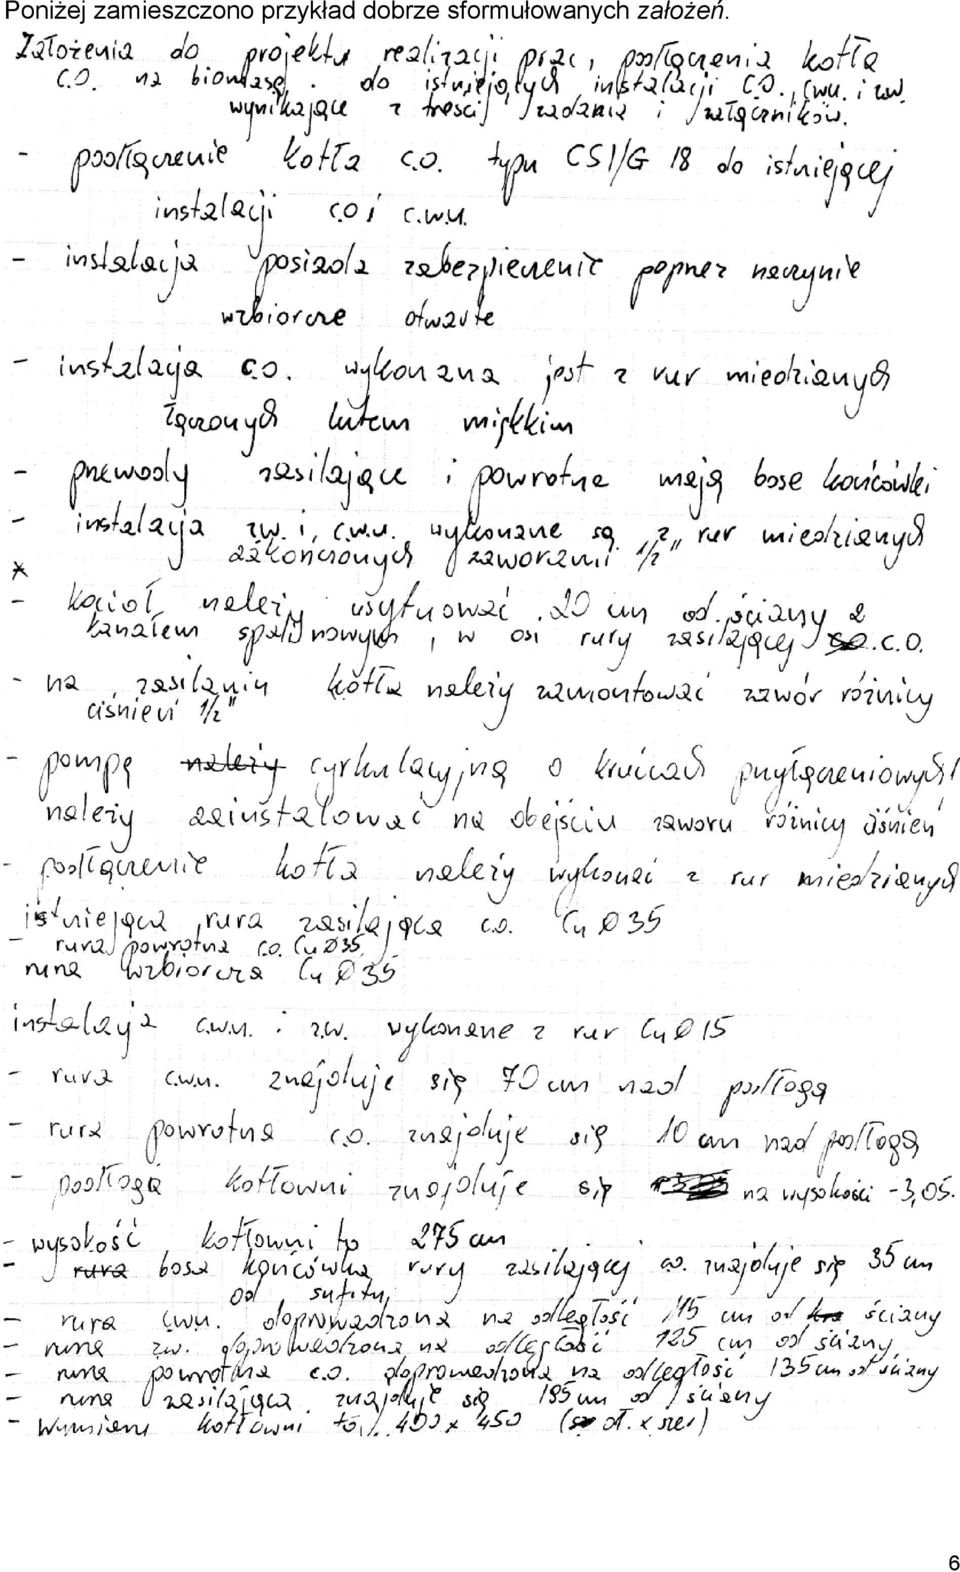 Poniżej zamieszczono przykład dobrze sformułowanych założeń.
Założenia do projektu realizacji prac, podłączenia kotła
C.O. na biomasę. do istniejących instalacji C.O., cwu. i zw.
wynikające z treści zadania i załączników.
- podłączenie kotła c.o. typu CSI/G 18 do istniejącej
instalacji c.o i c.w.u.
- instalacja posiada zabezpieczenie poprzez naczynie
wzbiorcze otwarte
- instalacja c.o. wykonana jest z rur miedzianych
łączonych lutem miękkim
- przewody zasilające i powrotne mają bose końcówki
- instalacja zw. i, c.w.u. wykonane są z rur miedzianych
zakończonych zaworami 1/2"
*
- kocioł należy usytuować 20 cm od ściany z
kanałem spalinowym, w osi rury zasilającej c.o.
- na zasilaniu kotła należy zamontować zawór różnicy
ciśnień 1/2"
- pompę należy cyrkulacyjną o króćcach przyłączeniowych
należy zainstalować na obejściu zaworu różnicy ciśnień
- podłączenie kotła należy wykonać z rur miedzianych
istniejąca rura zasilająca c.o. Cu Ø35
- rura powrotna c.o. Cu Ø35
rura wzbiorcza Cu Ø35
instalacja c.w.u. i zw. wykonane z rur Cu Ø15
- rura c.w.u. znajduje się 70 cm nad podłogą
- rura powrotna c.o. znajduje się 10 cm nad podłogą
- podłoga kotłowni znajduje się na wysokości -3,05.
- wysokość kotłowni to 275 cm
- rura bosa końcówka rury zasilającej co. znajduje się 35 cm
od sufitu,
- rura cwu. doprowadzona na odległość 115 cm od ściany
- rura zw. doprowadzona na odległość 125 cm od ściany
- rura powrotna c.o. doprowadzona na odległość 135 cm od ściany
- rura zasilająca znajduje się 195 cm od ściany
- wymiary kotłowni to 400 x 450 (dł. x szer)
6